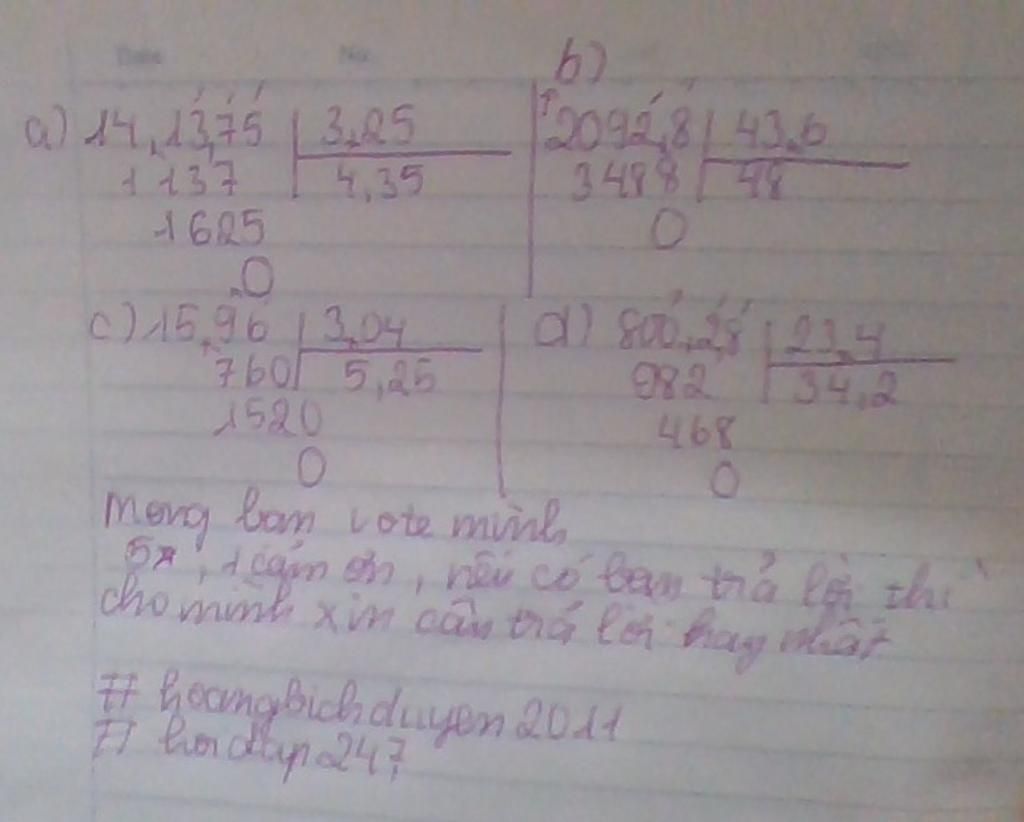 b)
a) 14,1375 | 3,25
1137 | 4,35
1625
0
2092,8 | 43,6
3488 | 48
0
c) 15,96 | 3,04
760 | 5,25
1520
0
d) 800,28 | 23,4
982 | 34,2
468
0
Mong bạn vote mình
5*, 1 cảm ơn, nếu có bạn trả lời thì
cho mình xin câu trả lời hay nhất
# hoangbichduyen2011
# hoidap247